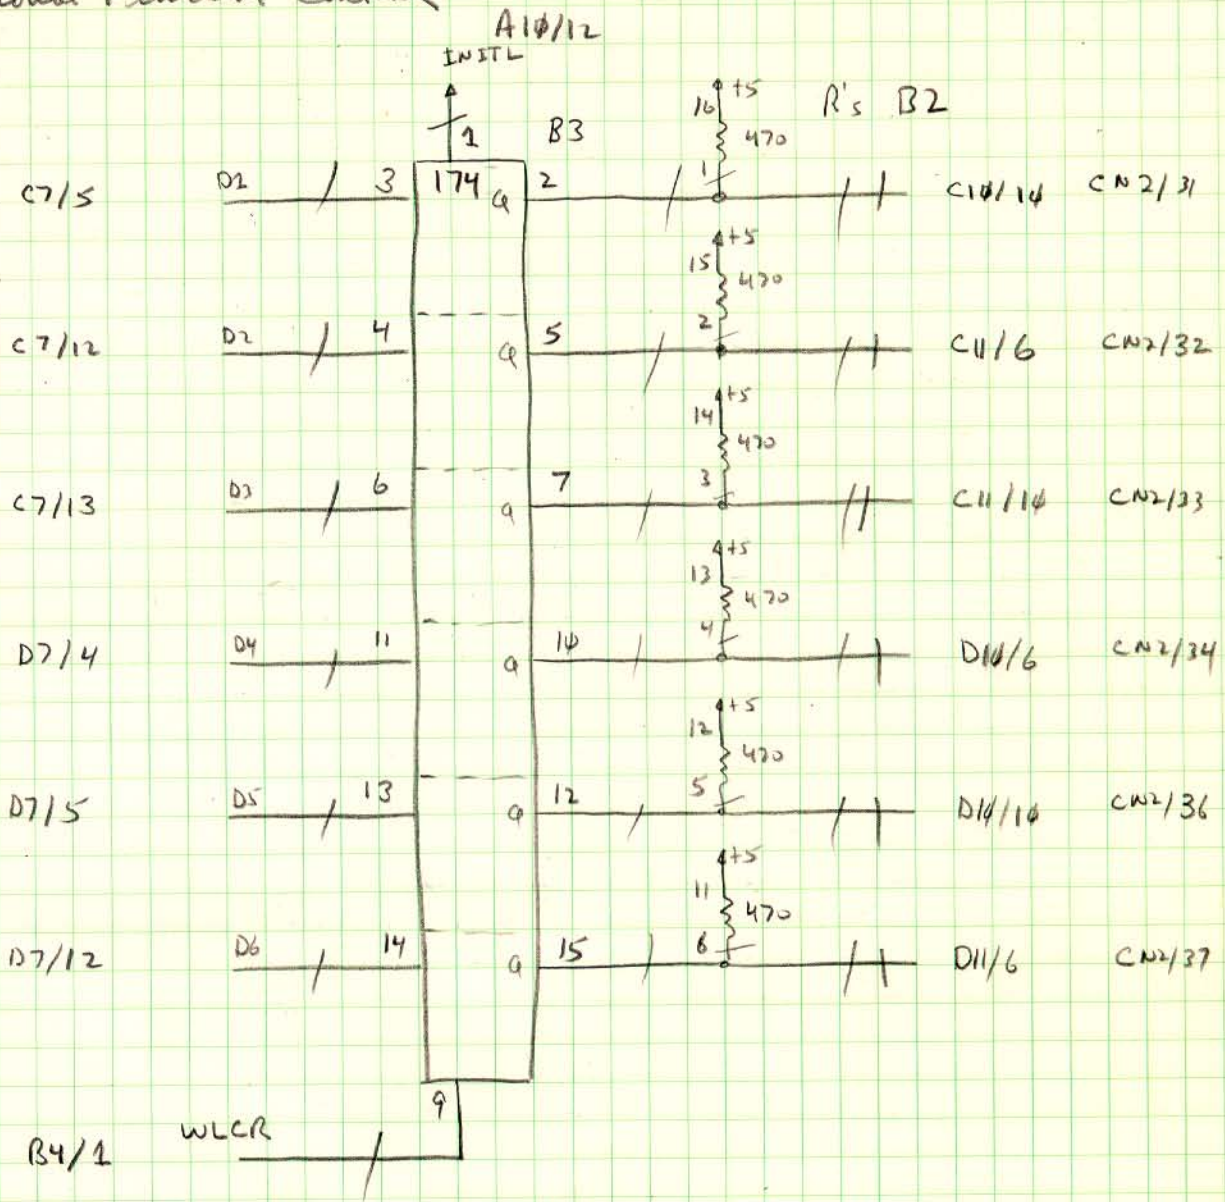 A10/12
INITL
1 B3 16 +5 R's B2
470
C7/5 D1 3 174 Q 2 1 C10/10 CN2/31
+5
15 470
C7/12 D2 4 Q 5 2 C11/6 CN2/32
+5
14 470
C7/13 D3 6 Q 7 3 C11/10 CN2/33
+5
13 470
D7/4 D4 11 Q 10 4 D10/6 CN2/34
+5
12 470
D7/5 D5 13 Q 12 5 D10/10 CN2/36
+5
11 470
D7/12 D6 14 Q 15 6 D11/6 CN2/37
9
B4/1 WLCR